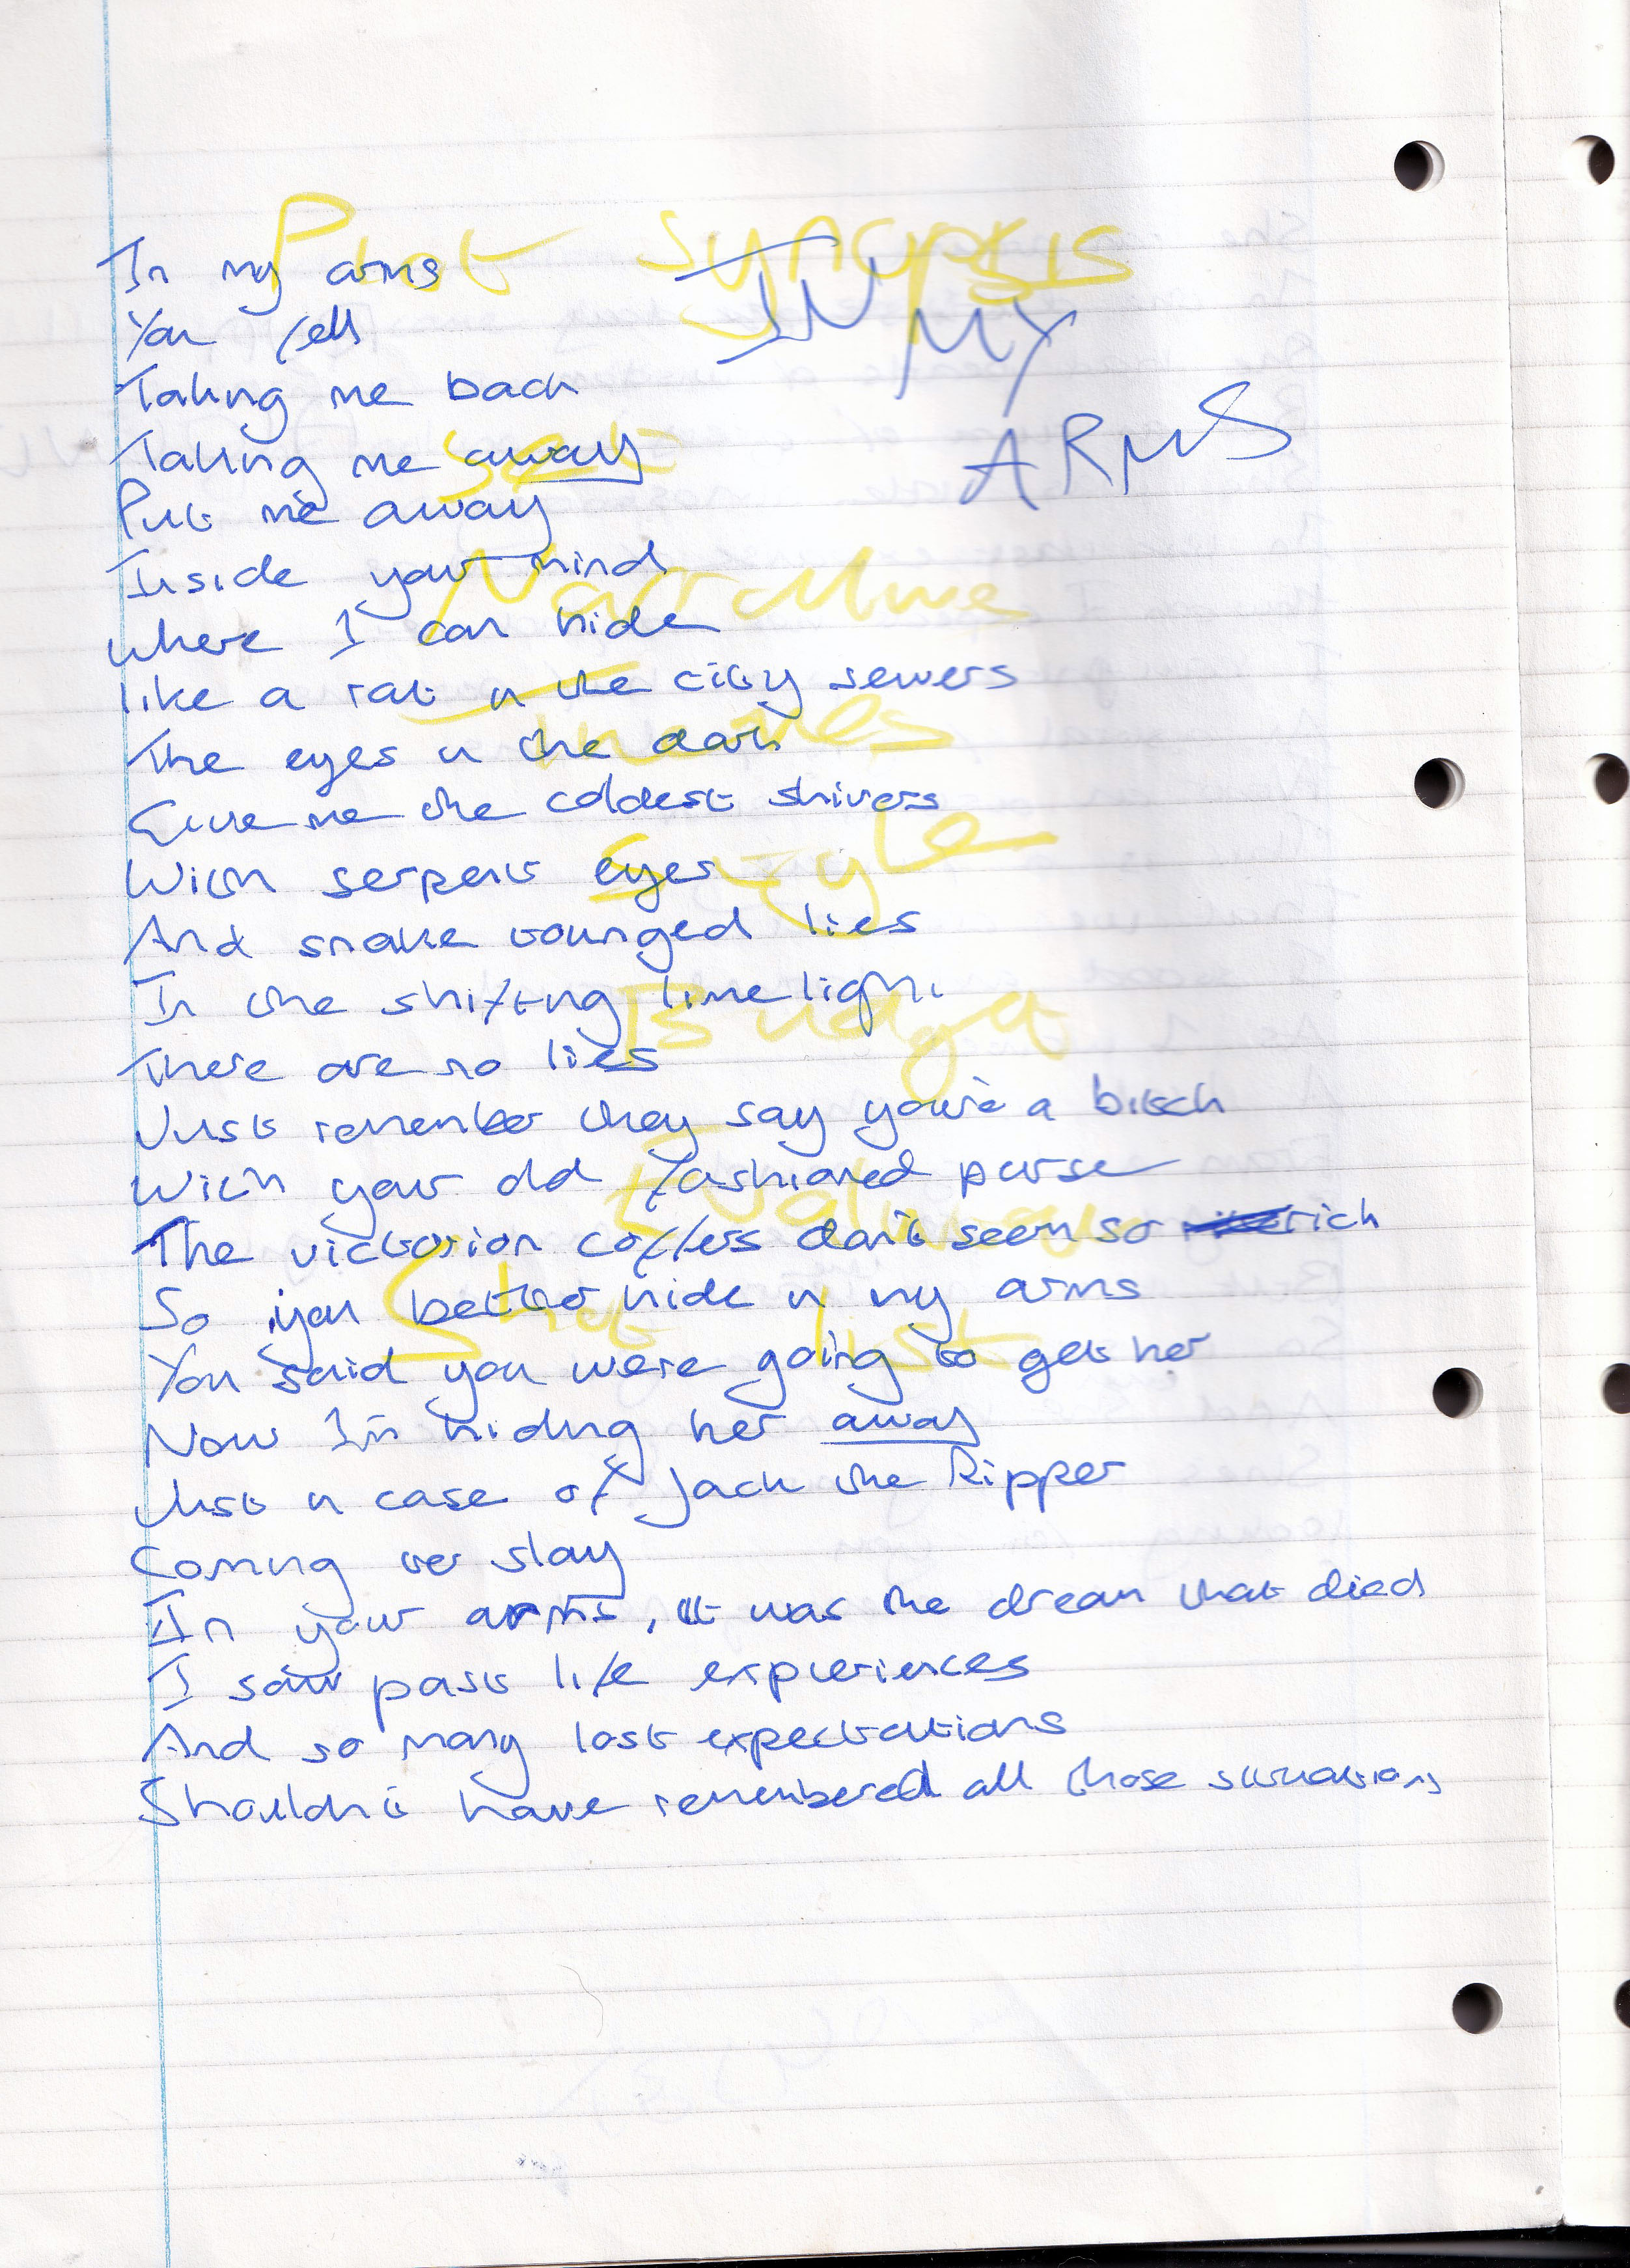 Plot synopsis
IN MY
ARMS
In my arms
You fell
Taking me back
Taking me away
Put me away
Inside your mind
where I can hide
like a rat in the city sewers
The eyes in the dark
Give me the coldest shivers
With serpent eyes
And snake tounged lies
In the shifting limelight
There are no lies
Just remember they say you're a bitch
With your old fashioned purse
The victorian coffers don't seem so rich
So you better hide in my arms
You said you were going to get her
Now I'm hiding her away
Just in case of Jack the Ripper
Coming to stay
In your arms, it was the dream that died
I saw past life experiences
And so many lost expectations
Shouldn't have remembered all those situations
Set
Narrative
themes
Style
Budget
Evaluation
Shot list